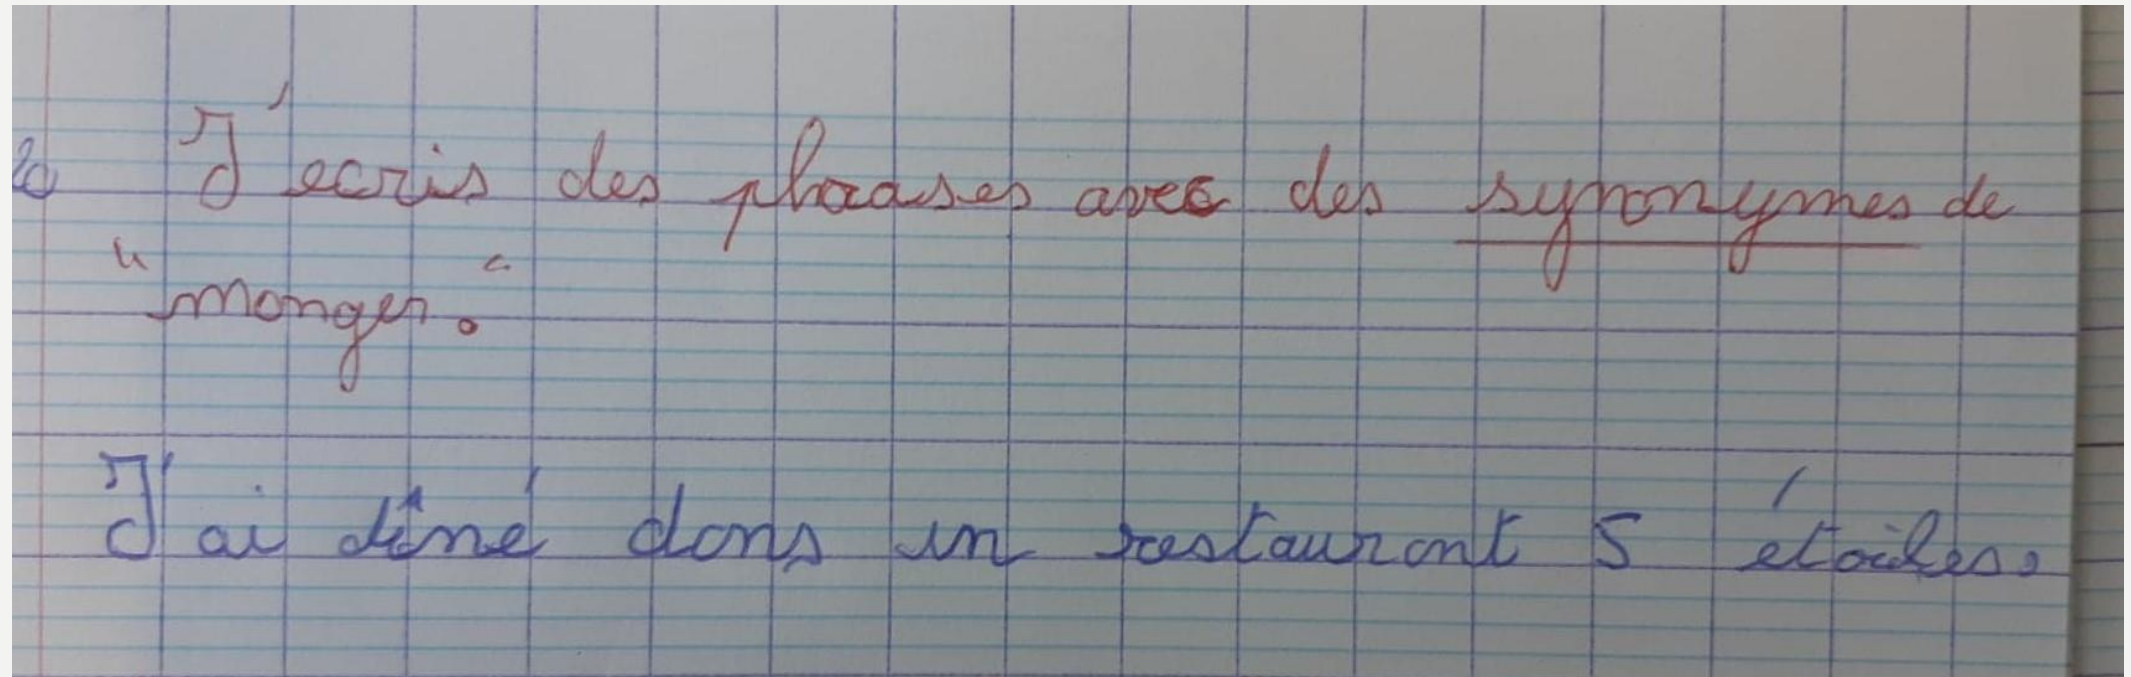 J'écris des phrases avec des synonymes de
"manger."
J'ai dîné dans un restaurant 5 étoiles.